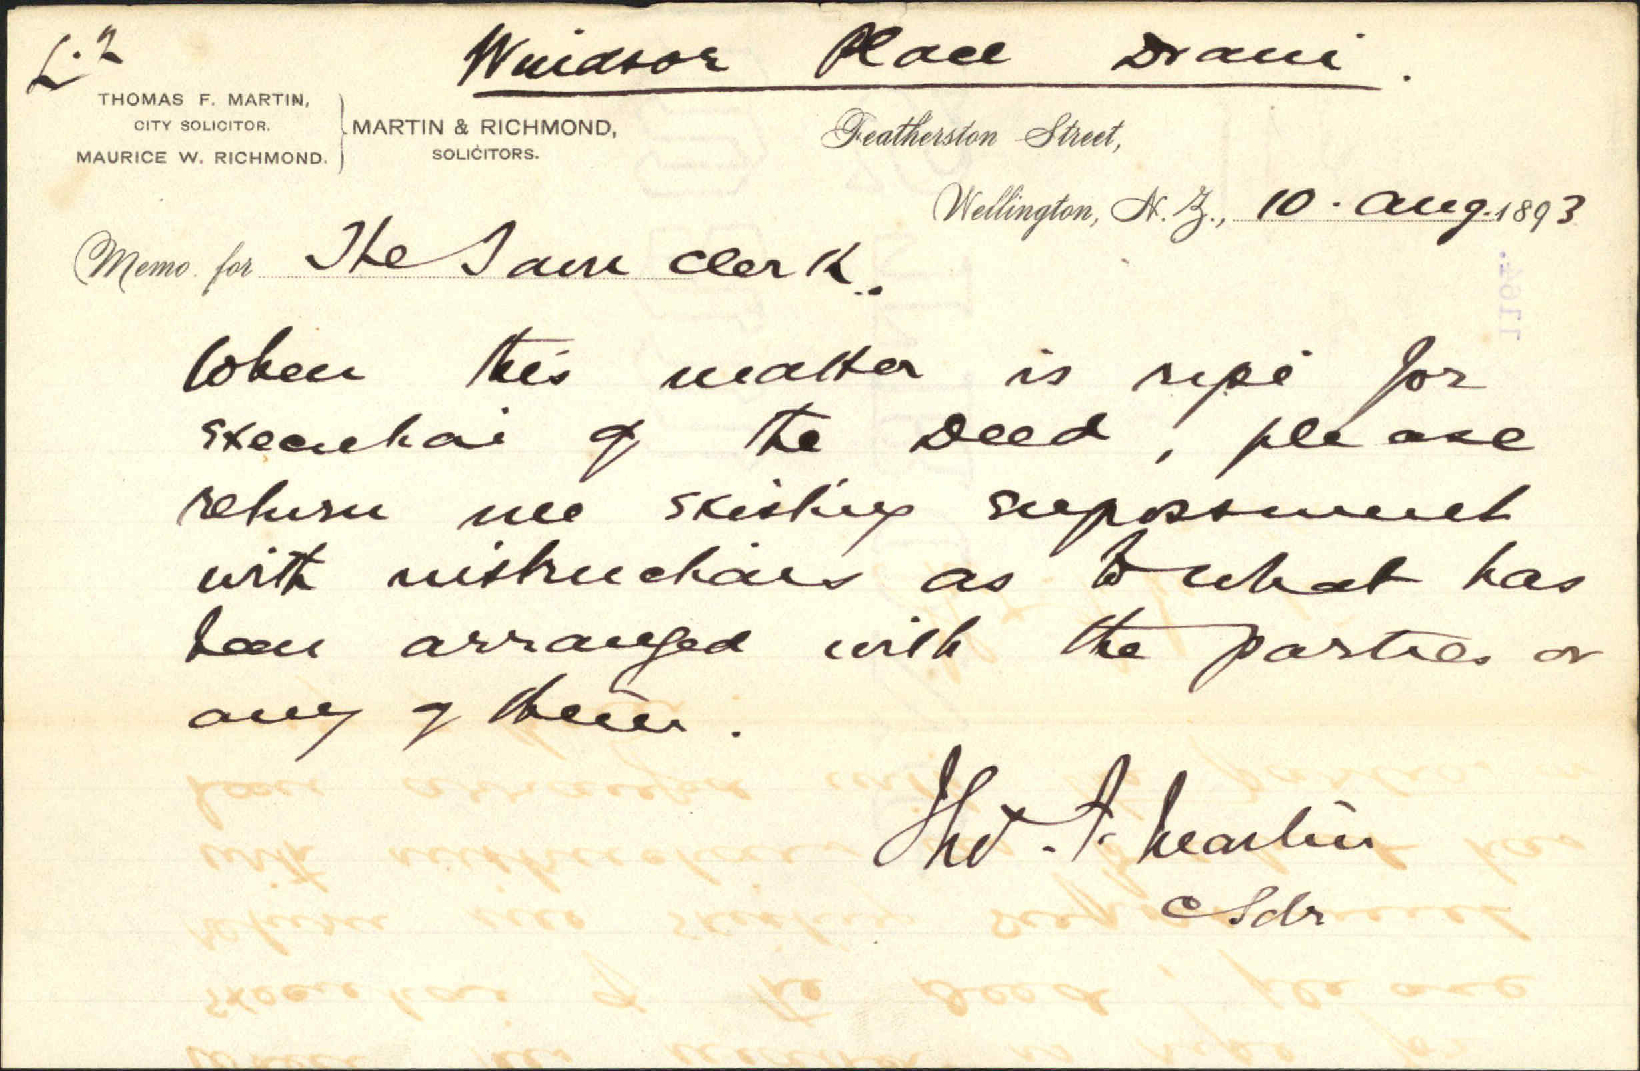 L.2
Windsor Place Drain.
THOMAS F. MARTIN,
CITY SOLICITOR.
MAURICE W. RICHMOND.
MARTIN & RICHMOND,
SOLICITORS.
Featherston Street,
Wellington, N.Z., 10. Aug. 1893
Memo. for The Town Clerk.
When this matter is ripe for
execution of the Deed, please
return me existing engrossment
with instructions as to what has
been arranged with the parties or
any of them.
Thos. F. Martin
C Solr
1164.